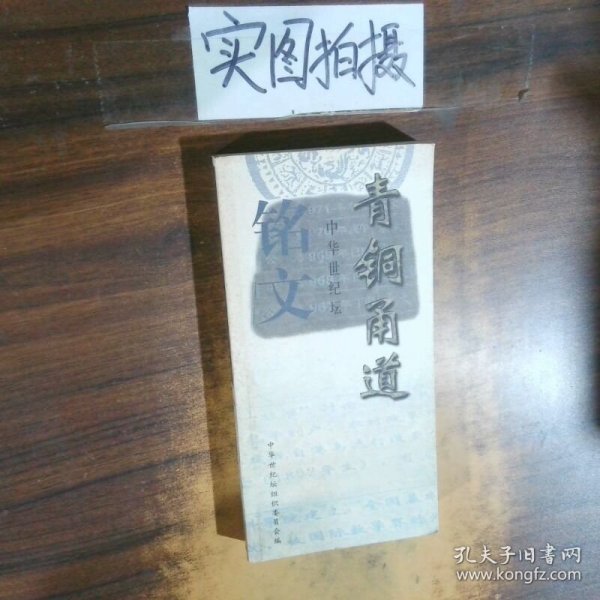 实图拍摄
中华世纪坛
青铜甬道
铭文
中华世纪坛组织委员会编
孔夫子旧书网
www.kongfz.com